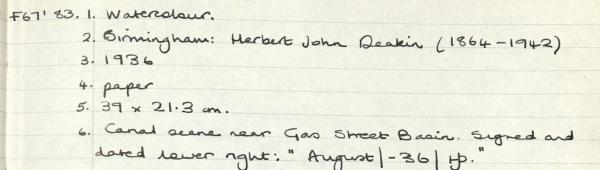 F67' 83. 1. Watercolour.
2. Birmingham: Herbert John Deakin (1864-1942)
3. 1936
4. paper
5. 39 x 21.3 cm.
6. Canal scene near Gas Street Basin. Signed and
dated lower right: " August | -36 | HD."